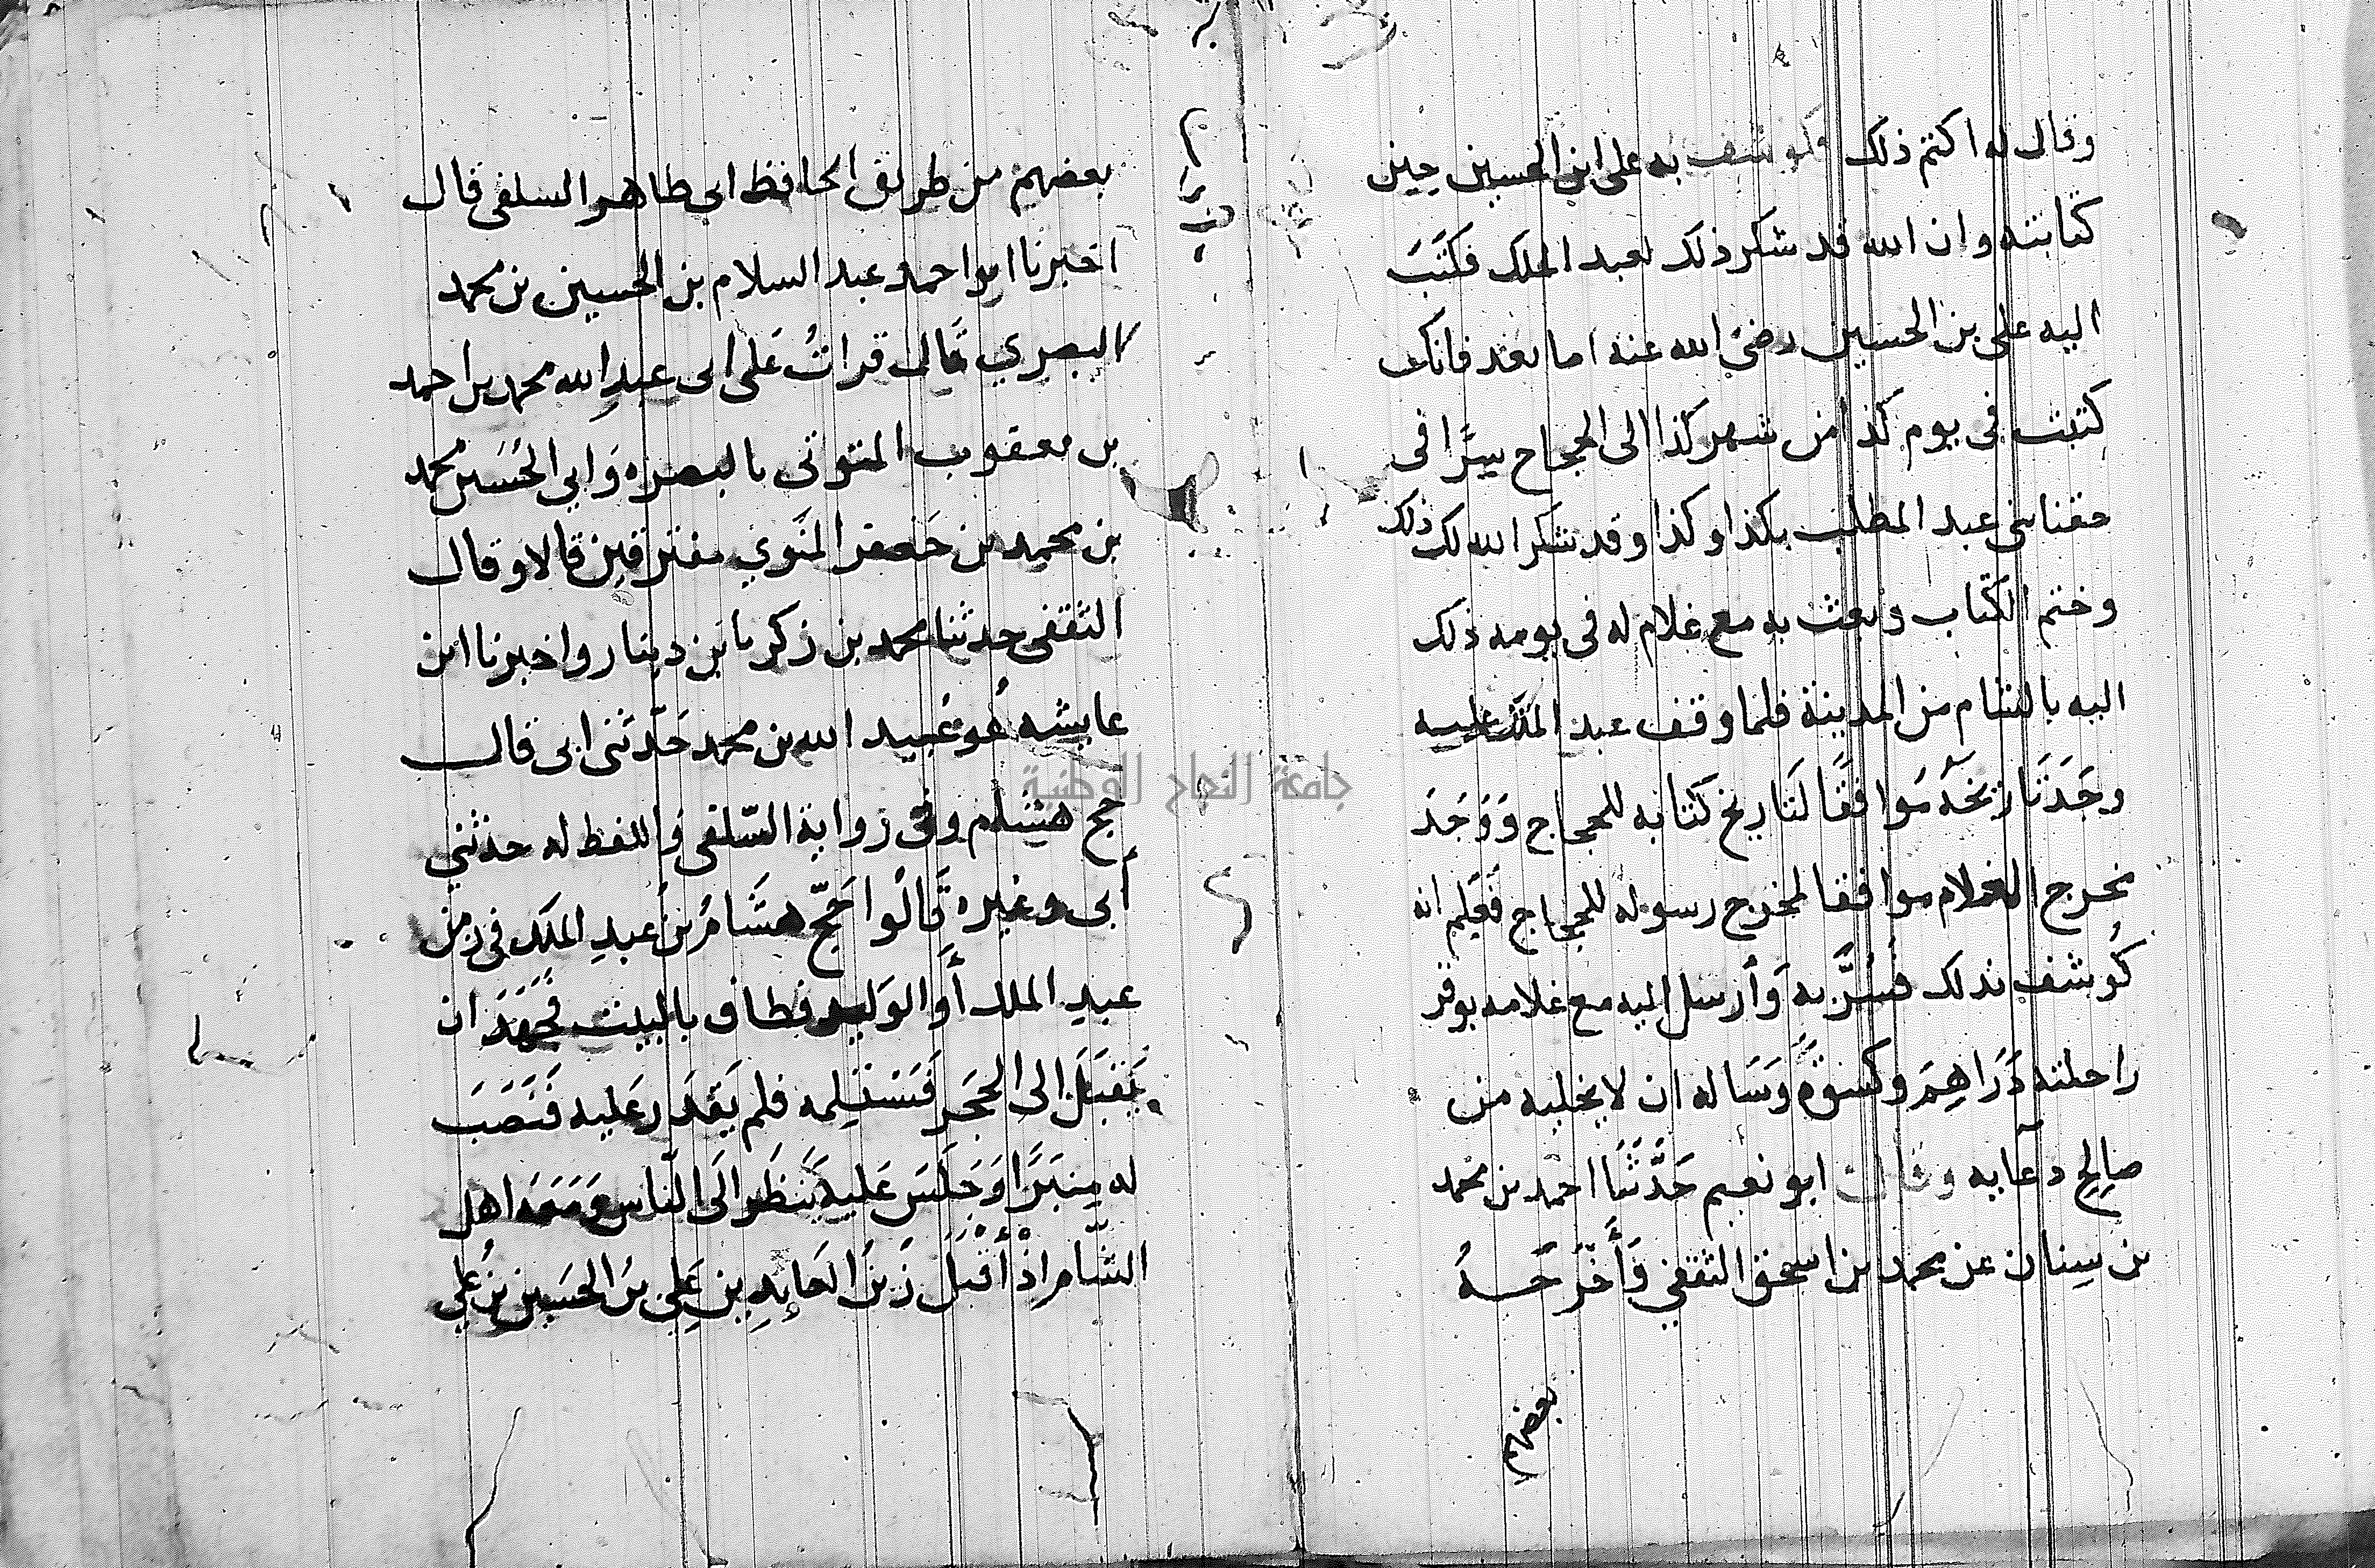 وقال له اكتم ذلك فكوشف به على ابن الحسين حين
كتابته وان الله قد شكر ذلك لعبد الملك فكتب
اليه على بن الحسين رضى الله عنه اما بعد فانك
كتبت فى يوم كذا من شهر كذا الى الحجاج سرا فى
حقنا بنى عبد المطلب بكذا وكذا وقد شكر الله لك ذلك
وختم الكتاب وبعث به مع غلام له فى يومه ذلك
اليه بالشام من المدينة فلما وقف عبد الملك عليه
وجد تاريخه موافقا لتاريخ كتابه للحجاج ووجد
مخرج الغلام موافقا لمخرج رسوله للحجاج فعلم انه
كوشف بذلك فسر به وأرسل اليه مع غلامه بوقر
راحلته دراهم وكسوة وساله ان لا يخليه من
صالح دعايه وقال ابو نعيم حدثنا احمد بن محمد
بن سنان عن محمد بن اسحق الثقفي وأخرجه
بعضهم
بعضهم من طريق الحافظ ابى طاهر السلفى قال
اخبرنا ابو احمد عبد السلام بن الحسين بن محمد
البصري قال قرات على ابى عبد الله محمد بن احمد
بن يعقوب المتوثى بالبصره وابي الحسين محمد
بن محمد بن جعفر المنوي مفترقين قالا وقال
الثقفى حدثنا محمد بن زكريا بن دينار واخبرنا ابن
عايشه هو عبيد الله بن محمد حدثنى ابى قال
حج هشام وفى رواية السلفى واللفظ له حدثني
أبى وغيره قالوا حج هشام بن عبد الملك فى زمن
عبد الملك أو الوليد فطاف بالبيت فجهد ان
يقبل الى الحجر فيستلمه فلم يقدر عليه فنصب
له منبرا وجلس عليه ينظر الى الناس ومعه اهل
الشام اذ أقبل زين العابدين علي بن الحسين بن علي
جامعة النجاح الوطنية